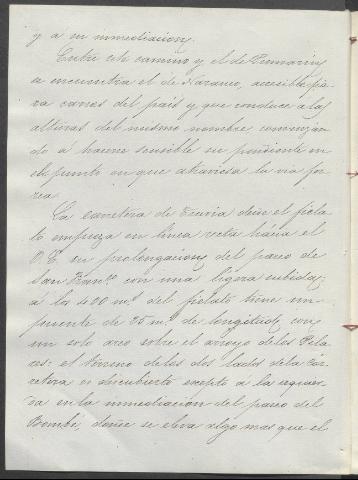 y a su inmediacion.
Entre este camino y el de Pumarin
se encuentra el de Naranco, accesible pa-
ra carros del país y que conduce a las
alturas del mismo nombre, comenzan-
do á hacerse sensible su pendiente en
el punto en que atraviesa la via fer-
rea.
La carretera de Trubia desde el fiela-
to empieza en linea recta hácia el
O. E. en prolongacion del paseo de
San Franco. con una ligera subida;
á los 400 ms. del fielato tiene un
puente de 25 ms. de longitud, con
un solo arco sobre el arroyo de los Pila-
res: el terreno de los dos lados de la car-
retera es descubierto escepto a la izquier-
da en la inmediacion del paseo del
Bombé, donde se eleva algo mas que el